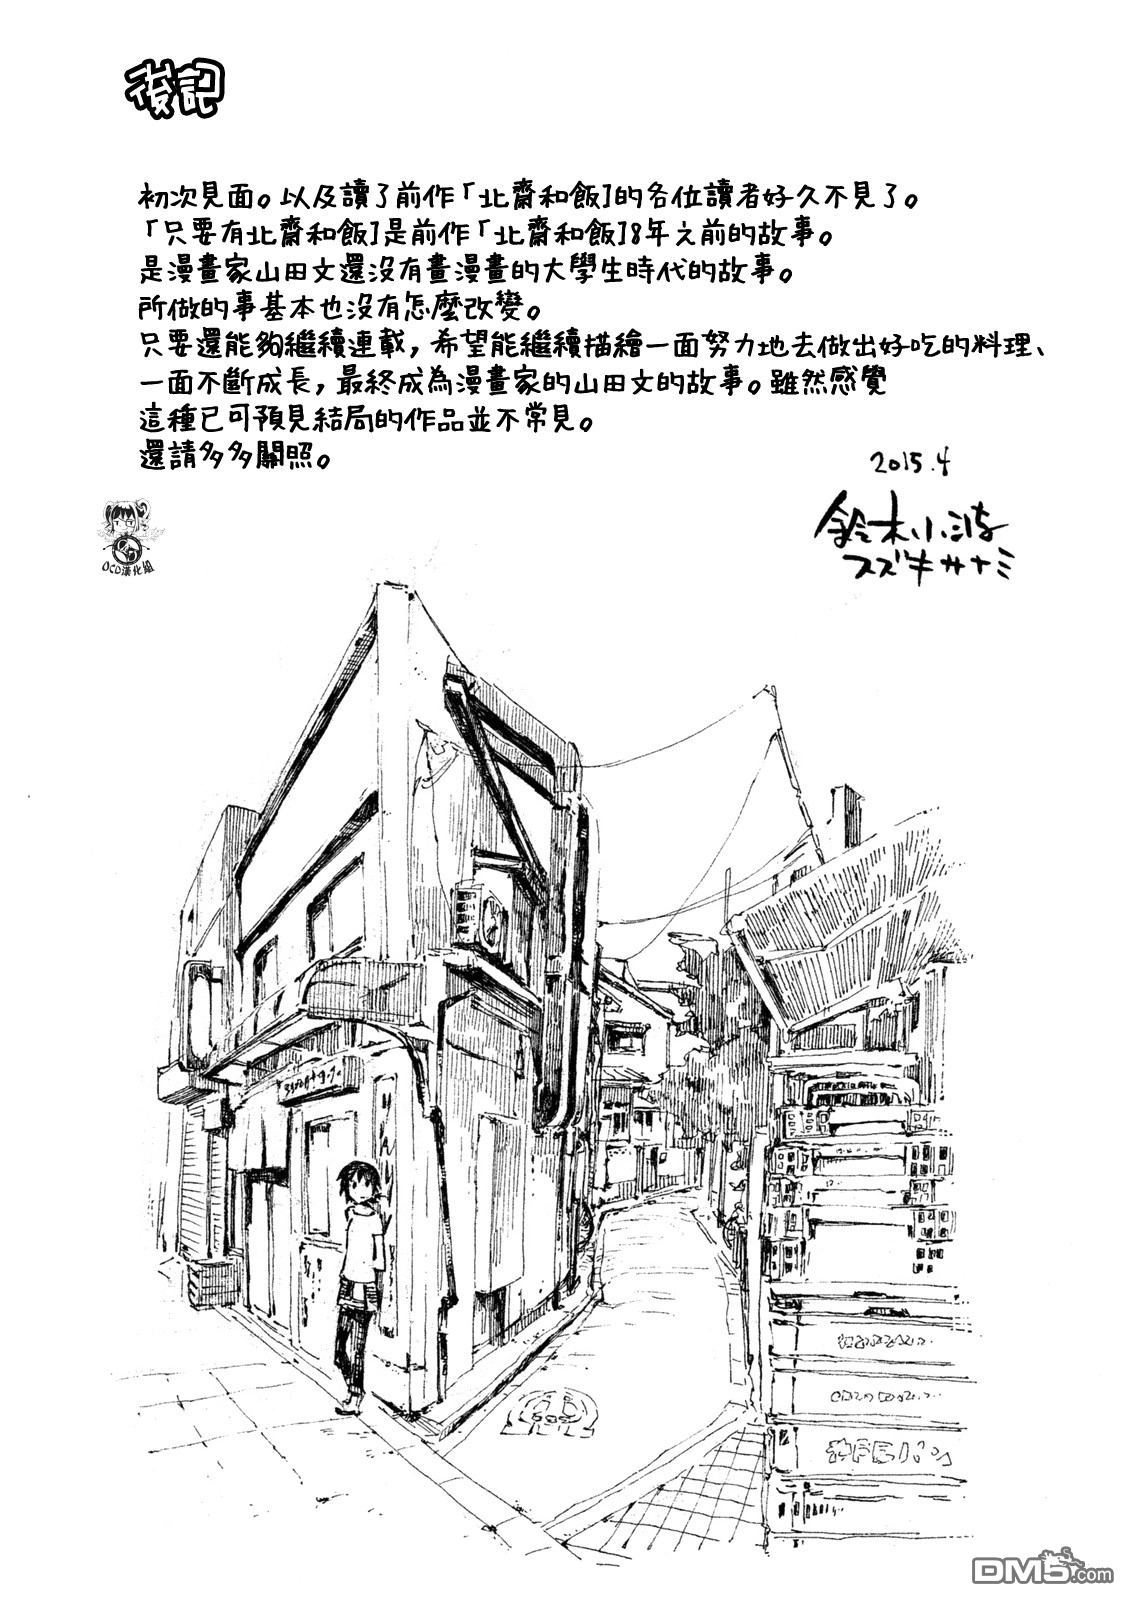 後記
初次見面。以及讀了前作「北齋和飯」的各位讀者好久不見了。
「只要有北齋和飯」是前作「北齋和飯」8年之前的故事。
是漫畫家山田文還沒有畫漫畫的大學生時代的故事。
所做的事基本也沒有怎麼改變。
只要還能夠繼續連載，希望能繼續描繪一面努力地去做出好吃的料理、
一面不斷成長，最終成為漫畫家的山田文的故事。雖然感覺
這種已可預見結局的作品並不常見。
還請多多關照。
2015.4
鈴木小波
スズキサナミ
OCD漢化組
DM5.com